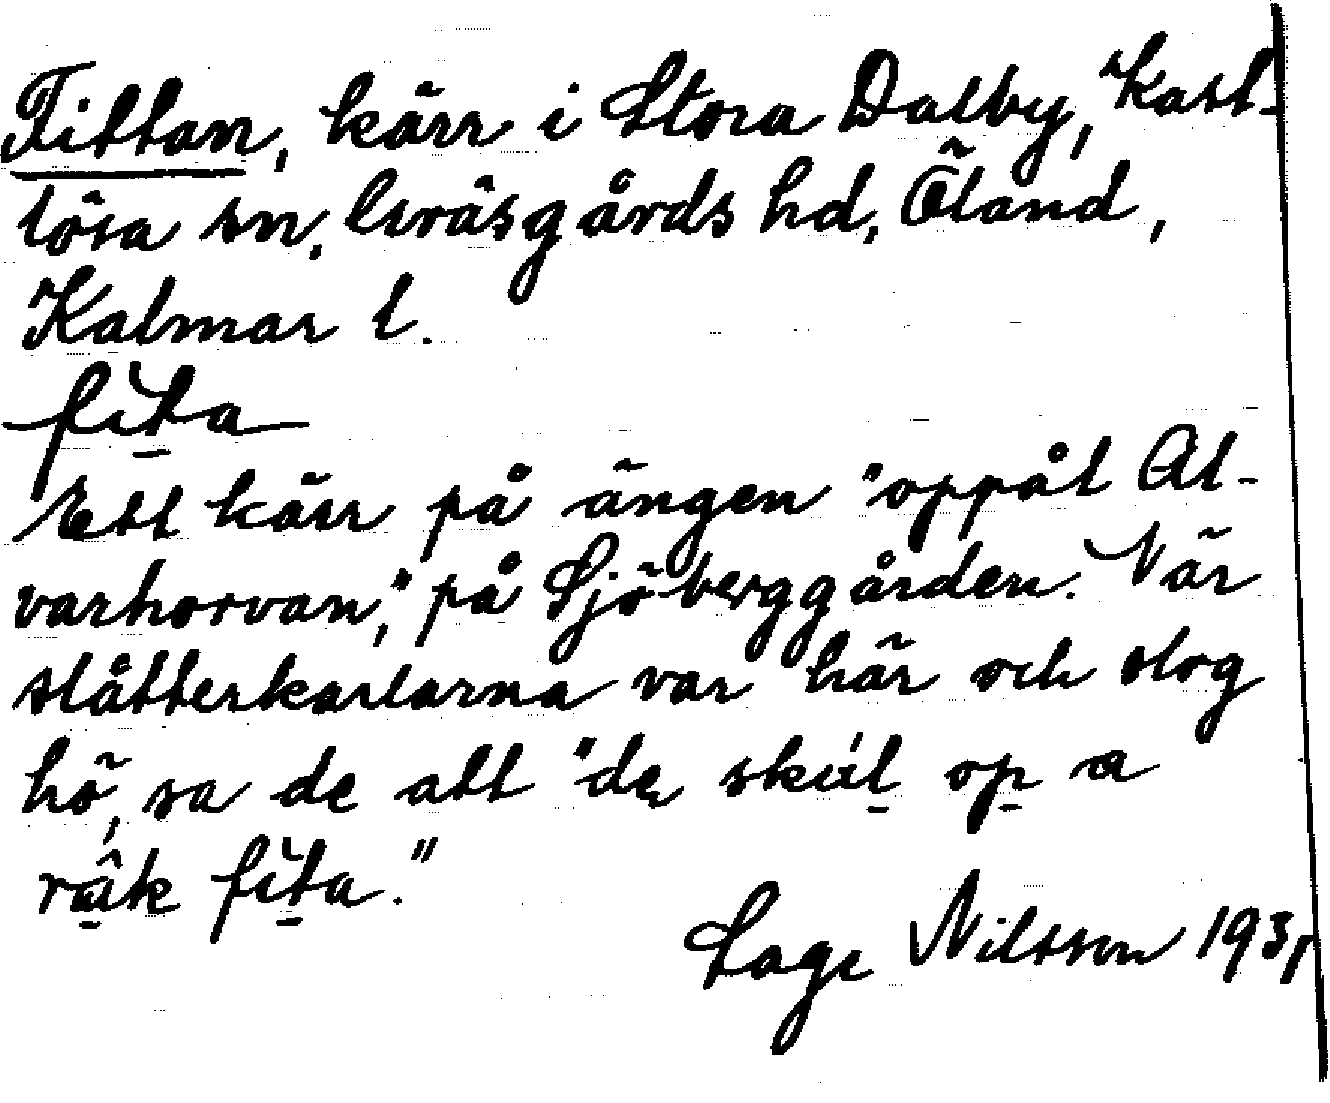 Fittan, kärr i Stora Dalby, Kast-
lösa sn. Gräsgårds hd, Öland,
Kalmar l.
fit̲a
Ett kärr på ängen "oppåt Al-
varhorvan," på Sjöberggården. När
slåtterkarlarna var här och slog
hö, sa de att "de skul̲ op̲ a
râ̲k fit̲a."
Sage Nilsson 1931